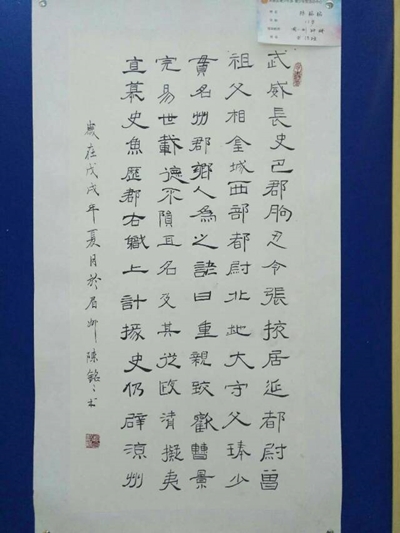 武威長史巴郡朐忍令張掖居延都尉曾
祖父相金城西部都尉北地大守父琫少
貫名州郡鄉人為之諺曰重親致歡曹景
完易世載德不隕其名及其從政清擬夷
直慕史魚歷郡右職上計掾史仍辟涼州
歲在戊戌年夏月於州陳銘々书